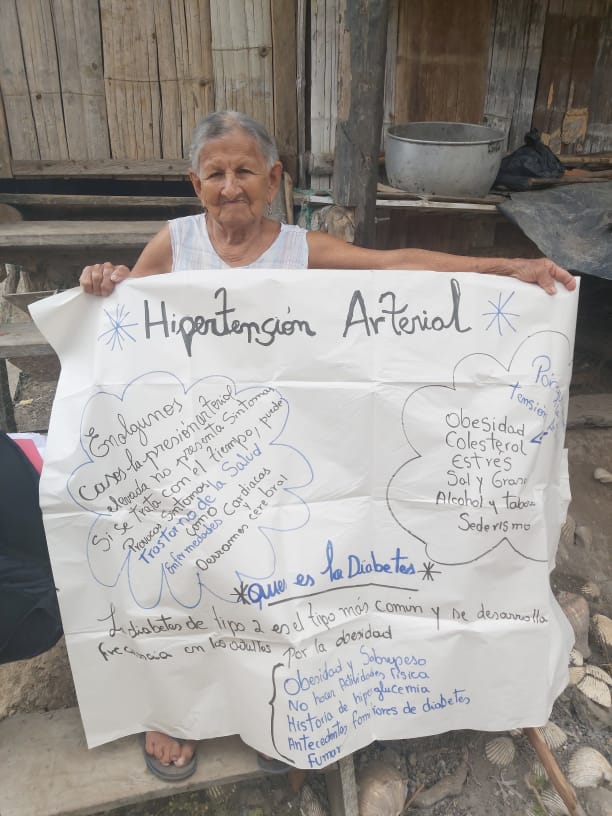 Hipertensión Arterial
En algunos
casos la presion arterial
elevada no presenta Sintomas
Si se trata con el tiempo, puede
Provocar Sintomas
Trastorno de la Salud
como Cardiacas
Enfermedades
Derrames cerebral
tensión
Obesidad
Colesterol
Estrés
Sal y Grasa
Alcohol y tabaco
Sederismo
*que es la Diabetes*
La diabetes de tipo 2 es el tipo más común y se desarrolla
frecuencia en los adultos Por la obesidad
Obesidad y Sobrepeso
No hacer Actividades física
Historia de hiperglucemia
Antecedentes familiares de diabetes
Fumar